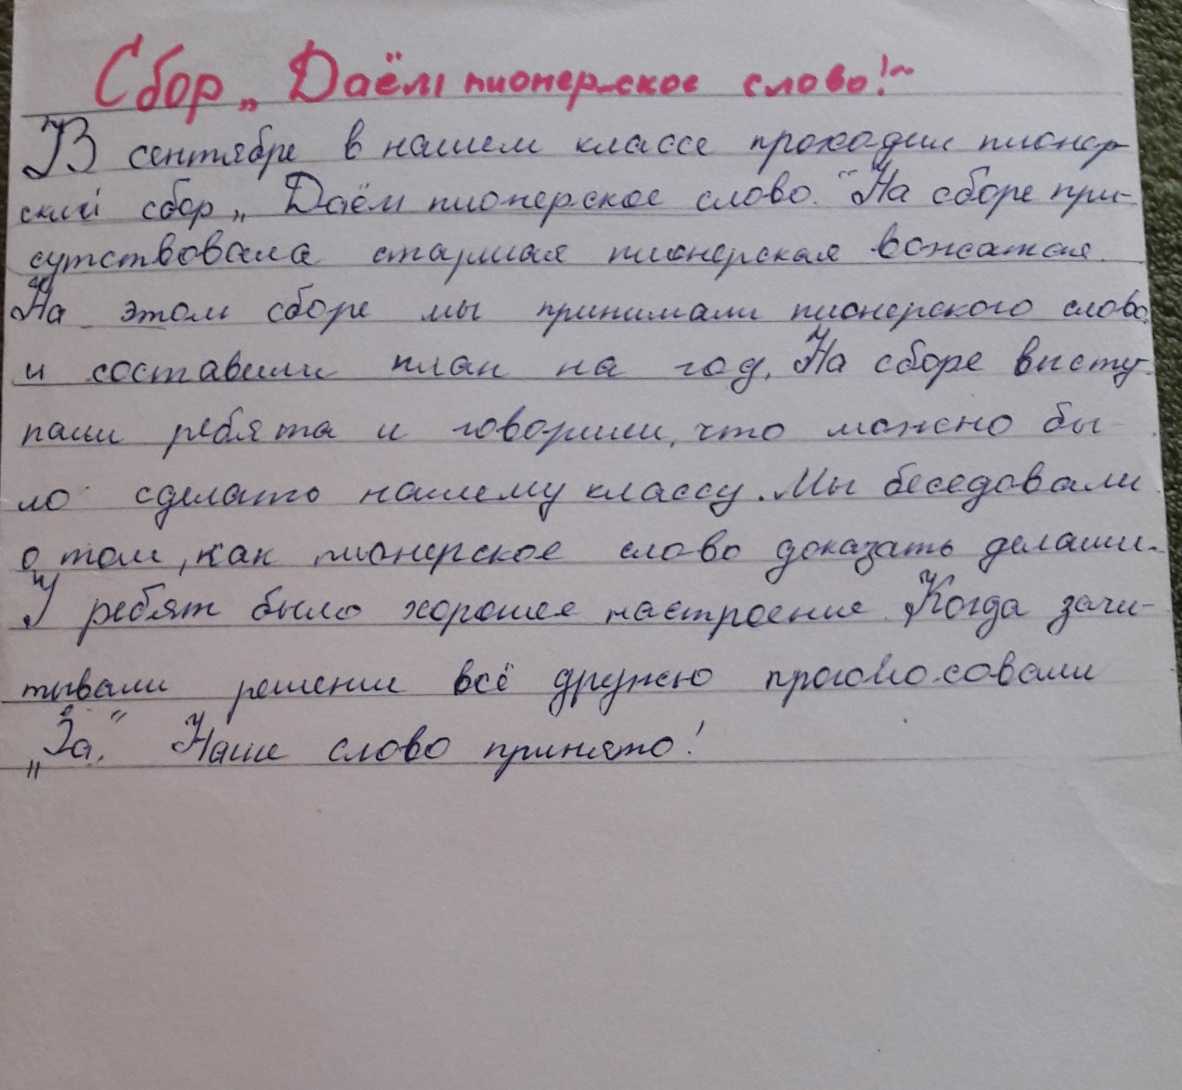 Сбор „Даём пионерское слово!“
В сентябре в нашем классе проходил пионер-
ский сбор „Даём пионерское слово.“ На сборе при-
сутствовала старшая пионерская вожатая.
На этом сборе мы принимали пионерского слово
и составили план на год. На сборе висту-
пали ребята и говорили, что можно бы-
ло сделать нашему классу. Мы беседовали
о том, как пионерское слово доказать делами.
У ребят было хорошее настроение. Когда зачи-
тывали решение всё дружно проголосовали
„За.“ Наше слово принято!